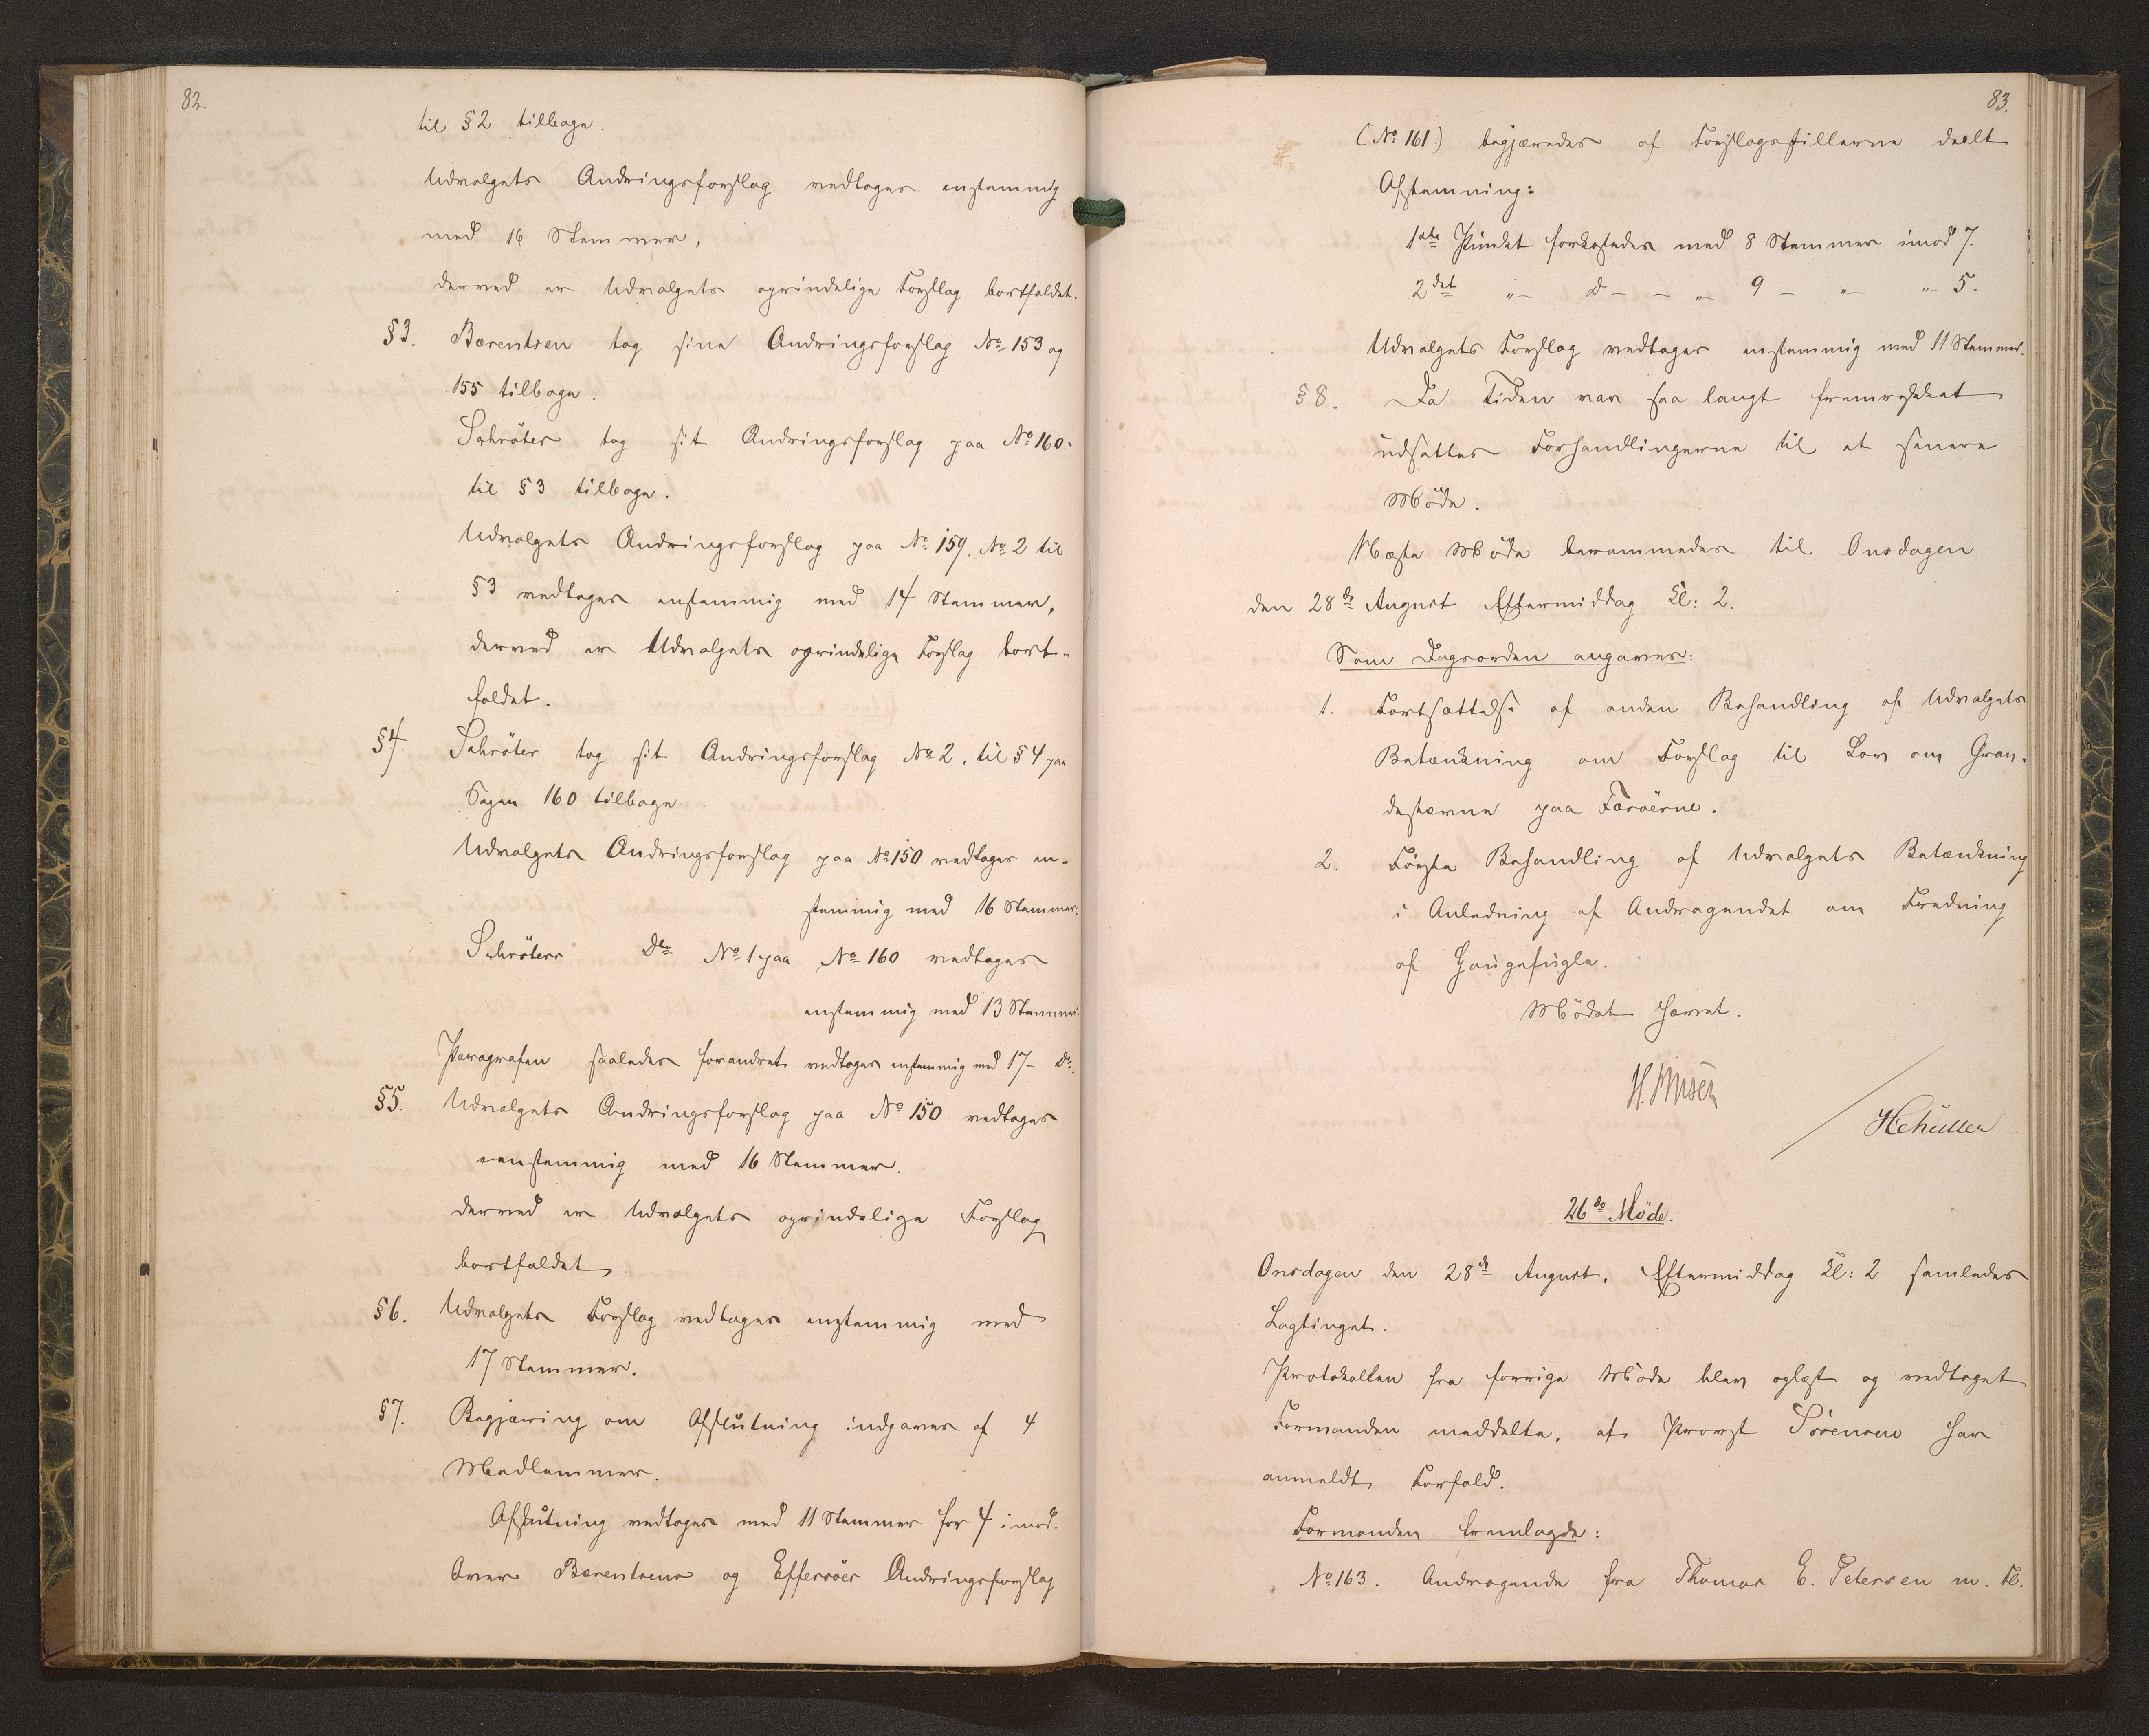 82.
til §2 tilbage.
Udvalgets Ændringsforslag vedtoges enstemmig
med 16 Stemmer,
derved er Udvalgets oprindelige Forslag bortfaldet.
§3. Bærentsen tog sine Ændringsforslag No 153 og
155 tilbage.
Schröter tog sit Ændringsforslag paa No 160.
til §3 tilbage.
Udvalgets Ændringsforslag paa No 159. No 2 til
§3 vedtoges enstemmig med 14 Stemmer,
derved er Udvalgets oprindelige Forslag bort-
faldet.
§4. Schröter tog sit Ændringsforslag No 2. til §4 paa
Sagen 160 tilbage.
Udvalgets Ændringsforslag paa No 150 vedtoges en-
stemmig med 16 Stemmer.
Schröters Do No 1 paa No 160 vedtoges
enstemmig med 13 Stemmer.
Paragrafen saaledes forandret vedtoges enstemmig med 17 - Do.
§5. Udvalgets Ændringsforslag paa No 150 vedtoges
eenstemmig med 16 Stemmer.
derved er Udvalgets oprindelige Forslag
bortfaldet.
§6. Udvalgets Forslag vedtoges enstemmig med
17 Stemmer.
§7. Begjæring om Afslutning indgaves af 4
Medlemmer.
Afslutning vedtoges med 11 Stemmer for 4 imod.
Over Bærentsens og Effersöes Ændringsforslag
83.
(No 161.) begjæredes af Forslagsstillerne deelt
Afstemning:
1ste Punkt forkastedes med 8 Stemmer imod 7.
2det „- d- - „- 9 - „- „- 5.
Udvalgets Forslag vedtoges enstemmig med 11 Stemmer.
§8. Da Tiden var saa langt fremrykket
udsattes Forhandlingerne til et senere
Möde.
Næste Möde berammedes til Onsdagen
den 28de August Eftermiddag Kl: 2.
Som Dagsorden angaves:
1. Fortsættelse af anden Behandling af Udvalgets
Betænkning om Forslag til Lov om Gran-
destevne paa Færöerne.
2. Förste Behandling af Udvalgets Betænkning
i Anledning af Andragendet om Fredning
af Gaugefugle.
Mödet hævet.
26de Möde.
Onsdagen den 28de August, Eftermiddag Kl: 2 samledes
Lagtinget.
Protokollen fra forrige Möde blev oplæst og vedtaget
Formanden meddelte, at Provst Sörensen har
anmeldt Forfald.
Formanden fremlagde:
No 163. Andragende fra Thomas E. Petersen m. Fl.